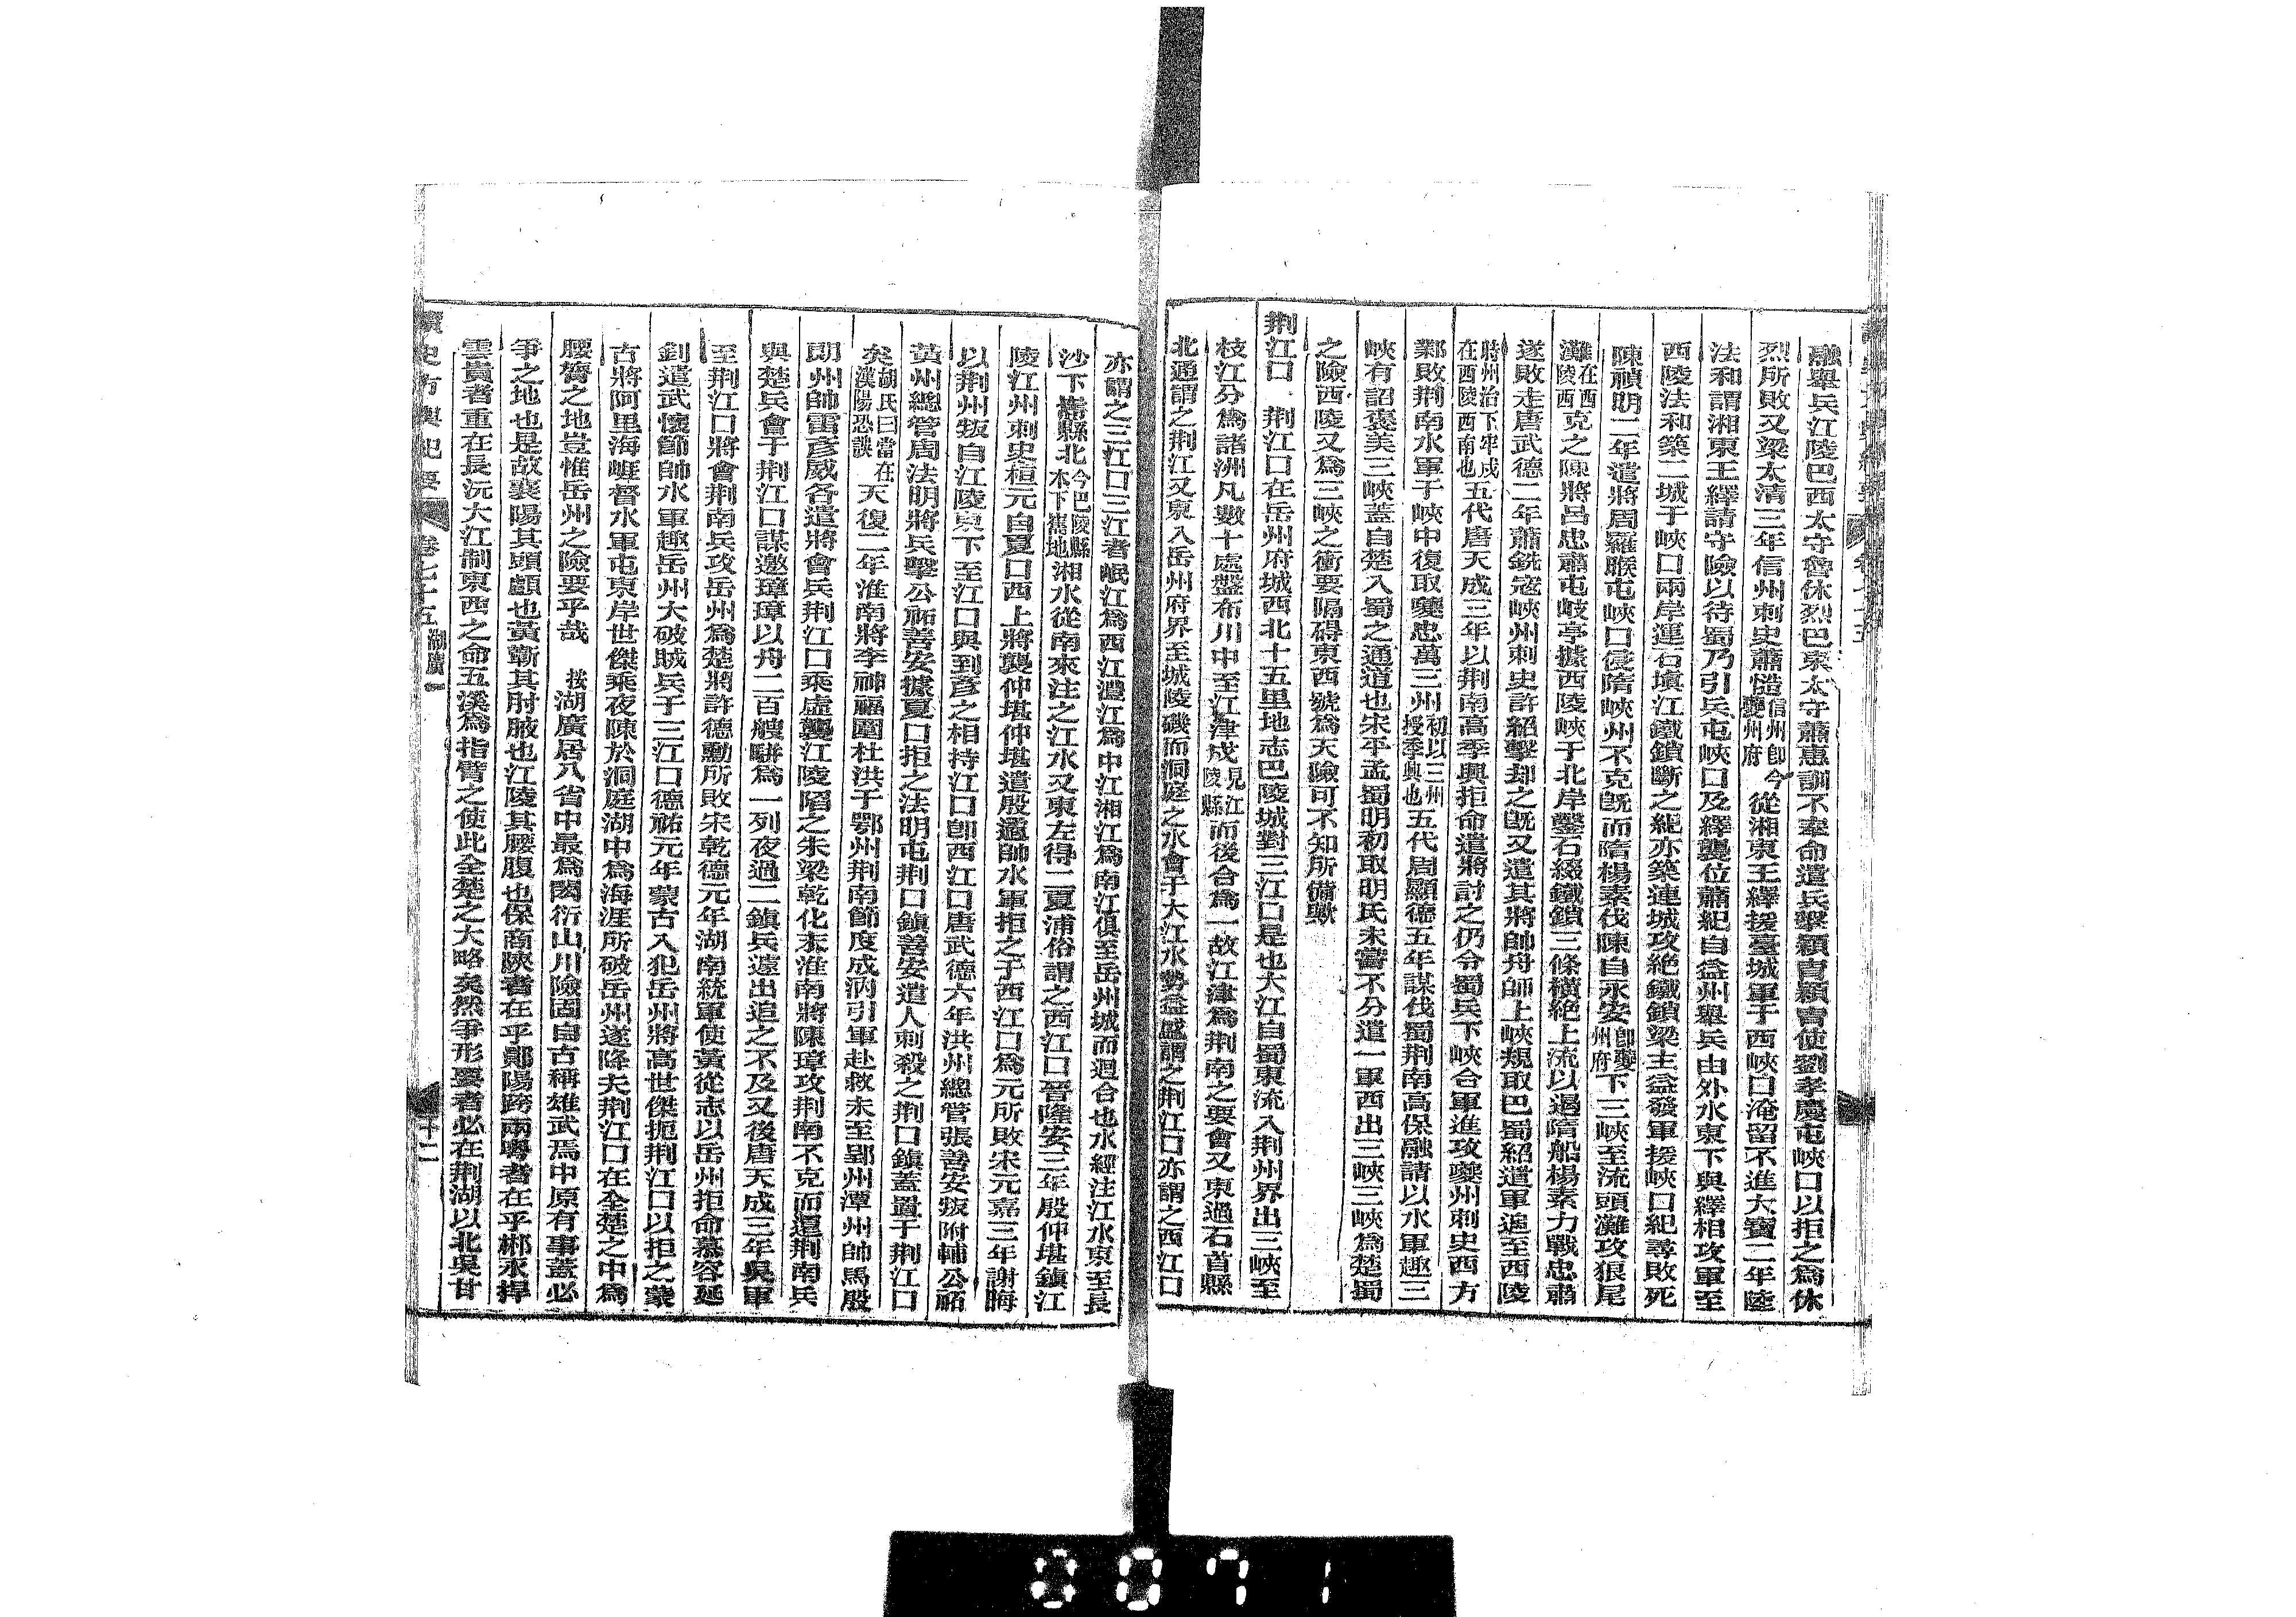 融舉兵江陵巴西太守魯休烈巴東太守蕭惠訓不奉命遣兵擊穎冑穎冑使劉孝慶屯峽口以拒之爲休
烈所敗又梁太清三年信州刺史蕭慥信州卽今夔州府從湘東王繹援臺城軍于西峽口淹留不進大寶二年陸
法和謂湘東王繹請守險以待蜀乃引兵屯峽口及繹襲位蕭紀自益州舉兵由外水東下與繹相攻軍至
西陵法和築二城于峽口兩岸運石塡江鐵鎖斷之紀亦築連城攻絶鐵鎖梁主益發軍援峽口紀尋敗死
陳禎明二年遣將周羅睺屯峽口侵隋峽州不克旣而隋楊素伐陳自永安卽夔州府下三峽至流頭灘攻狼尾
灘在西陵西克之陳將呂忠肅屯岐亭據西陵峽于北岸鑿石綴鐵鎖三條橫絶上流以遏隋船楊素力戰忠肅
遂敗走唐武德二年蕭銑寇峽州刺史許紹擊却之旣又遣其將帥舟師上峽規取巴蜀紹遣軍追至西陵
時州治下牢戍在西陵西南也五代唐天成三年以荆南高季興拒命遣將討之仍令蜀兵下峽合軍進攻夔州刺史西方
鄴敗荆南水軍于峽中復取夔忠萬三州初以三州授季興也五代周顯德五年謀伐蜀荆南高保融請以水軍趣三
峽有詔褒美三峽蓋自楚入蜀之通道也宋平孟蜀明初取明氏未嘗不分遣一軍西出三峽三峽爲楚蜀
之險西陵又爲三峽之衝要隔碍東西號爲天險可不知所備歟
荆江口 荆江口在岳州府城西北十五里地志巴陵城對三江口是也大江自蜀東流入荆州界出三峽至
枝江分爲諸洲凡數十處盤布川中至江津戍見江陵縣而後合爲一故江津爲荆南之要會又東過石首縣
北通謂之荆江又東入岳州府界至城陵磯而洞庭之水會于大江水勢益盛謂之荆江口亦謂之西江口
亦謂之三江口三江者岷江爲西江澧江爲中江湘江爲南江俱至岳州城而迴合也水經注江水東至長
沙下雋縣北今巴陵縣本下雋地湘水從南來注之江水又東左得二夏浦俗謂之西江口晉隆安三年殷仲堪鎭江
陵江州刺史桓元自夏口西上將襲仲堪仲堪遣殷遹帥水軍拒之于西江口爲元所敗宋元嘉三年謝晦
以荆州叛自江陵東下至江口與到彥之相持江口卽西江口唐武德六年洪州總管張善安叛附輔公祏
黃州總管周法明將兵擊公祏善安據夏口拒之法明屯荆口鎭善安遣人刺殺之荆口鎭蓋置于荆江口
矣胡氏曰當在漢陽恐誤天復二年淮南將李神福圍杜洪于鄂州荆南節度成汭引軍赴救未至鄂州潭州帥馬殷
朗州帥雷彥威各遣將會兵荆江口乘虛襲江陵陷之朱梁乾化末淮南將陳璋攻荆南不克而還荆南兵
與楚兵會于荆江口謀邀璋璋以舟二百艘駢爲一列夜過二鎭兵遽出追之不及又後唐天成三年吳軍
至荆江口將會荆南兵攻岳州爲楚將許德勳所敗宋乾德元年湖南統軍使黃從志以岳州拒命慕容延
釗遣武懷節帥水軍趣岳州大破賊兵于三江口德祐元年蒙古入犯岳州將高世傑扼荆江口以拒之蒙
古將阿里海崕督水軍屯東岸世傑乘夜陳於洞庭湖中爲海涯所破岳州遂降夫荆江口在全楚之中爲
腰膂之地豈惟岳州之險要乎哉 按湖廣居八省中最爲閎衍山川險固自古稱雄武焉中原有事蓋必
爭之地也是故襄陽其頭顱也黃蘄其肘腋也江陵其腰腹也保商陝者在乎鄖陽跨兩粵者在乎郴永捍
雲貴者重在長沅大江制東西之命五溪爲指臂之使此全楚之大略矣然爭形要者必在荆湖以北吳甘
讀史方輿紀要 卷七十五 湖廣一 廿一